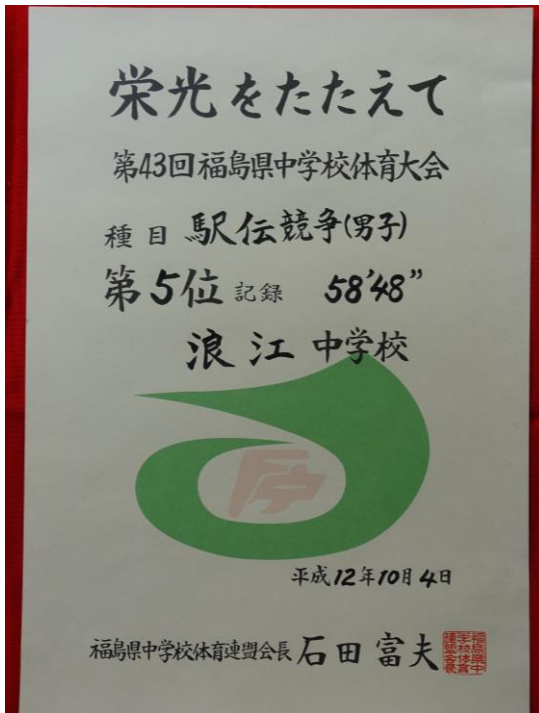 栄光をたたえて
第43回福島県中学校体育大会
種目 駅伝競争(男子)
第5位 記録 58'48"
浪江 中学校
平成12年10月4日
福島県中学校体育連盟会長 石田富夫
福島県中学校体育連盟会長